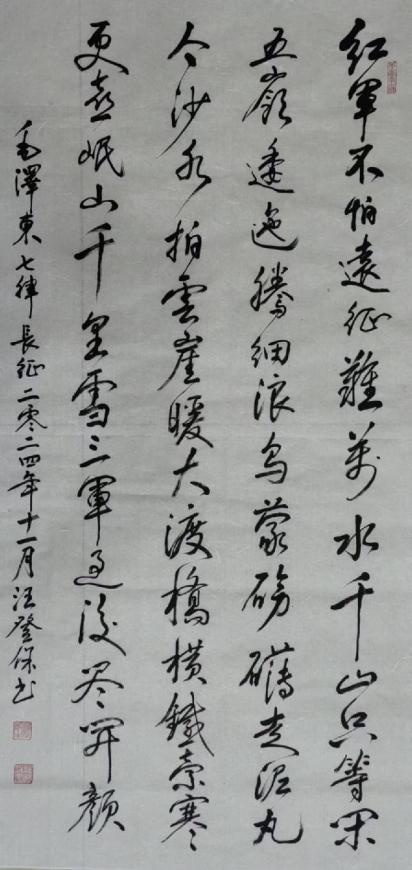 紅軍不怕遠征難萬水千山只等闲
五嶺逶迤騰細浪烏蒙磅礴走泥丸
金沙水拍雲崖暖大渡橋横鐵索寒
更喜岷山千里雪三軍過後尽開顔
毛澤東七律長征二零二四年十一月汪登保书